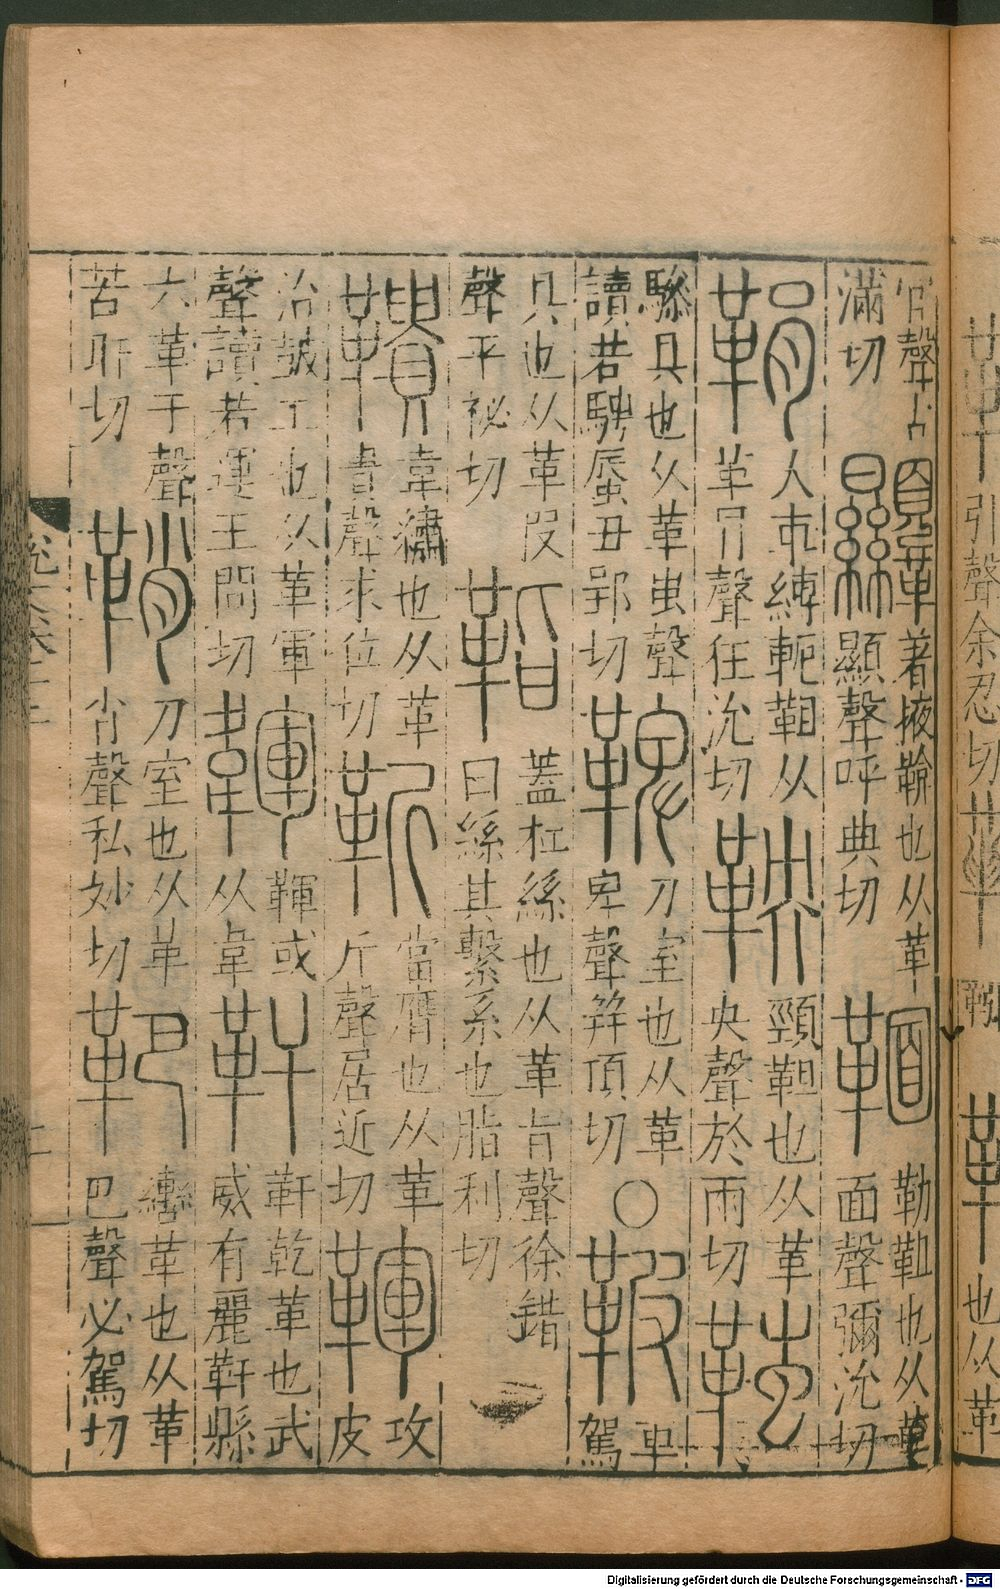 引聲余忍切
也从革
官聲古滿切韅著掖鞥也从革顯聲呼典切䩏勒靼也从革面聲彌沇切
鞙大車縛軛靼从革肙聲狂沇切鞅頸靼也从革央聲於兩切䩶
驂具也从革蚩聲讀若騁蜃丑郢切鞞刀室也从革卑聲并頂切○鞁車駕
具也从革皮聲平祕切𩊝蓋杠絲也从革旨聲徐鍇曰絲其繫系也脂利切
鞼韋繡也从革貴聲求位切靳當膺也从革斤聲居近切鞰攻皮
治鼓工也从革軍聲讀若運王問切韗鞰或从韋靬靬乾革也武威有麗靬縣
从革干聲苦旰切鞘刀室也从革肖聲私妙切靶轡革也从革巴聲必駕切
Digitalisierung gefördert durch die Deutsche Forschungsgemeinschaft - DFG